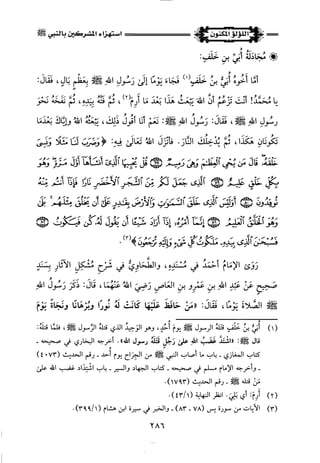 اللؤلؤ المكنون
استهزاء المشركين بالنبي ﷺ
مُجَادَلَةُ أُبَيِّ بنِ خَلَفٍ:
أَمَّا أَخُوهُ أُبَيُّ بنُ خَلَفٍ(١) فَجَاءَ يَوْمًا إلَى رَسُولِ اللهِ ﷺ بِعَظْمٍ بَالٍ، فَقَالَ:
يا مُحَمَّدُ! أَنْتَ تَزْعُمُ أَنَّ اللهَ يَبْعَثُ هَذَا بَعْدَ مَا أَرِمَ(٢)، ثُمَّ فَتَّهُ بِيَدِهِ، ثُمَّ نَفَخَهُ نَحْوَ
رسولِ اللهِ ﷺ، فَقَالَ: رَسُولُ اللهِ ﷺ: نَعَمْ أنَا أقُولُ ذَلِكَ، يَبْعَثُهُ اللهُ وَإِيَّاكَ بَعْدَمَا
تَكُونَانِ هَكَذَا، ثُمَّ يُدْخِلُكَ النَّارَ. فَأَنْزَلَ اللهُ تَعَالَى فِيهِ: ﴿وَضَرَبَ لَنَا مَثَلًا وَنَسِيَ
خَلْقَهُ قَالَ مَن يُحْيِ الْعِظَامَ وَهِيَ رَمِيمٌ قُلْ يُحْيِيهَا الَّذِي أَنشَأَهَا أَوَّلَ مَرَّةٍ وَهُوَ
بِكُلِّ خَلْقٍ عَلِيمٌ الَّذِي جَعَلَ لَكُم مِّنَ الشَّجَرِ الْأَخْضَرِ نَارًا فَإِذَا أَنتُم مِّنْهُ
تُوقِدُونَ أَوَلَيْسَ الَّذِي خَلَقَ السَّمَاوَاتِ وَالْأَرْضَ بِقَادِرٍ عَلَىٰ أَن يَخْلُقَ مِثْلَهُم بَلَىٰ
وَهُوَ الْخَلَّاقُ الْعَلِيمُ إِنَّمَا أَمْرُهُ إِذَا أَرَادَ شَيْئًا أَن يَقُولَ لَهُ كُن فَيَكُونُ
فَسُبْحَانَ الَّذِي بِيَدِهِ مَلَكُوتُ كُلِّ شَيْءٍ وَإِلَيْهِ تُرْجَعُونَ﴾(٣).
رَوَى الإِمَامُ أحْمَدُ في مُسْنَدِهِ، والطَّحَاوِيُّ في شَرْحِ مُشْكِلِ الآثَارِ بِسَنَدٍ
صَحِيحٍ عَنْ عَبْدِ اللهِ بنِ عَمْرِو بنِ العَاصِ رَضِيَ اللهُ عَنْهُمَا، قَالَ: ذَكَرَ رَسُولُ اللهِ
ﷺ الصَّلَاةَ يَوْمًا، فَقَالَ: «مَنْ حَافَظَ عَلَيْهَا كَانَتْ لَهُ نُورًا وبُرْهَانًا ونَجَاةً يَوْمَ
(١) أُبَيُّ بنُ خَلَفٍ قتلهُ الرسول ﷺ يومَ أُحُدٍ، وهو الوَحِيدُ الذي قتلهُ الرَّسول ﷺ، فلمَّا قتلهُ:
قال ﷺ: «اشْتَدَّ غَضَبُ اللهِ على رَجُلٍ قَتَلَهُ رسول الله». أخرجه البخاري في صحيحه -
كتاب المغازي - باب ما أصاب النبي ﷺ من الجِرَاحِ يوم أحد - رقم الحديث (٤٠٧٣)
- وأخرجه الإمام مسلم في صحيحه - كتاب الجهاد والسير - باب اشتِدَاد غضب الله على
مَنْ قتله ﷺ - رقم الحديث (١٧٩٣).
(٢) أَرِمَ: أي بَلِيَ. انظر النهاية (٤٣/١).
(٣) الآيات من سورة يس (٧٨ - ٨٣) - والخبر في سيرة ابن هشام (٣٩٩/١).
٢٨٦